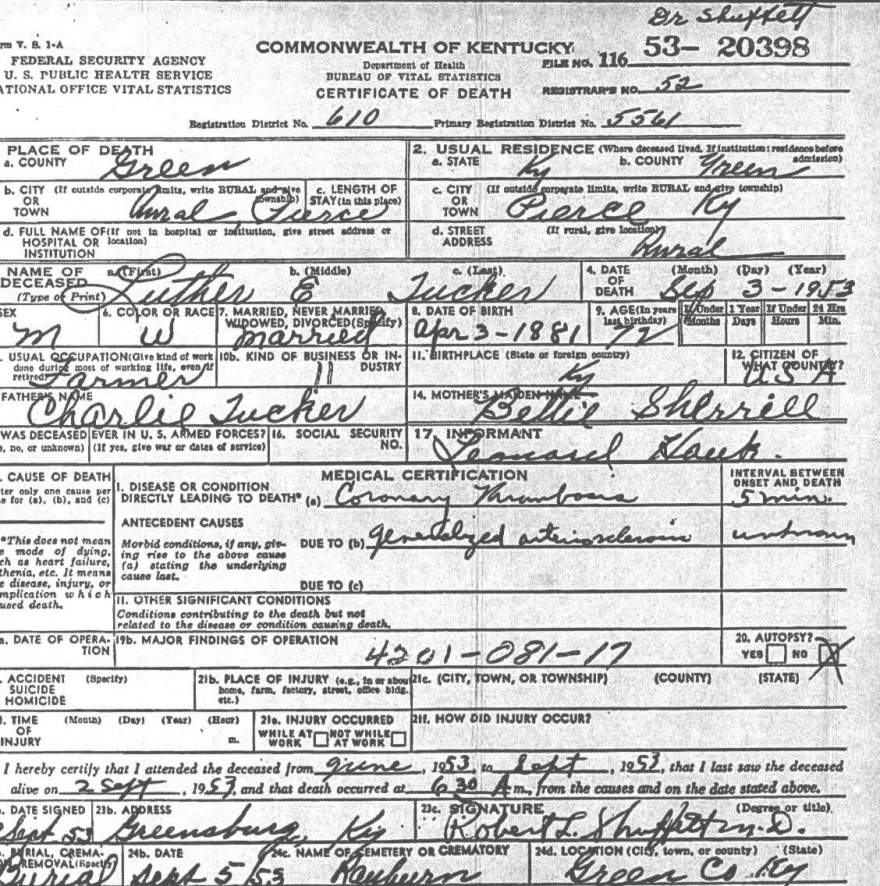 Dr Shuffett
rm V. S. 1-A
FEDERAL SECURITY AGENCY
U. S. PUBLIC HEALTH SERVICE
ATIONAL OFFICE VITAL STATISTICS
COMMONWEALTH OF KENTUCKY
Department of Health
BUREAU OF VITAL STATISTICS
CERTIFICATE OF DEATH
FILE NO. 116 53- 20398
REGISTRAR'S NO. 52
Registration District No. 610 Primary Registration District No. 5561
PLACE OF DEATH
a. COUNTY Green
2. USUAL RESIDENCE (Where deceased lived. If institution: residence before admission)
a. STATE Ky b. COUNTY Green
b. CITY (If outside corporate limits, write RURAL and give township)
OR
TOWN Rural, Pierce
c. LENGTH OF STAY (in this place)
c. CITY (If outside corporate limits, write RURAL and give township)
OR
TOWN Pierce Ky
d. FULL NAME OF (If not in hospital or institution, give street address or location)
HOSPITAL OR
INSTITUTION
d. STREET ADDRESS (If rural, give location)
Rural
NAME OF DECEASED
(Type or Print)
a. (First) b. (Middle) c. (Last)
Luther E Tucker
4. DATE OF DEATH (Month) (Day) (Year)
Sep 3-1953
SEX
M
6. COLOR OR RACE
W
7. MARRIED, NEVER MARRIED, WIDOWED, DIVORCED (Specify)
married
8. DATE OF BIRTH
Apr 3-1881
9. AGE (In years last birthday)
72
If Under 1 Year If Under 24 Hrs
Months Days Hours Min.
. USUAL OCCUPATION (Give kind of work done during most of working life, even if retired)
Farmer
10b. KIND OF BUSINESS OR INDUSTRY
11
11. BIRTHPLACE (State or foreign country)
Ky
12. CITIZEN OF WHAT COUNTRY?
USA
FATHER'S NAME
Charlie Tucker
14. MOTHER'S MAIDEN NAME
Bettie Sherrill
WAS DECEASED EVER IN U. S. ARMED FORCES?
s, no, or unknown) (If yes, give war or dates of service)
16. SOCIAL SECURITY NO.
17. INFORMANT
Leonard
. CAUSE OF DEATH
ter only one cause per
e for (a), (b), and (c)
MEDICAL CERTIFICATION
INTERVAL BETWEEN ONSET AND DEATH
I. DISEASE OR CONDITION
DIRECTLY LEADING TO DEATH* (a) Coronary Thrombosis 5 min.
ANTECEDENT CAUSES
*This does not mean
e mode of dying,
ch as heart failure,
thenia, etc. It means
e disease, injury, or
mplication which
used death.
Morbid conditions, if any, giving rise to the above cause (a) stating the underlying cause last.
DUE TO (b) generalized arteriosclerosis unknown
DUE TO (c)
II. OTHER SIGNIFICANT CONDITIONS
Conditions contributing to the death but not
related to the disease or condition causing death.
a. DATE OF OPERATION
19b. MAJOR FINDINGS OF OPERATION
4201-081-17
20. AUTOPSY?
YES NO X
. ACCIDENT (Specify)
SUICIDE
HOMICIDE
21b. PLACE OF INJURY (e.g., in or about home, farm, factory, street, office bldg. etc.)
21c. (CITY, TOWN, OR TOWNSHIP) (COUNTY) (STATE)
. TIME (Month) (Day) (Year) (Hour)
OF
INJURY m.
21e. INJURY OCCURRED
WHILE AT WORK NOT WHILE AT WORK
21f. HOW DID INJURY OCCUR?
I hereby certify that I attended the deceased from June, 1953, to Sept, 1953, that I last saw the deceased
alive on 2 Sept, 1953, and that death occurred at 6 30 A m., from the causes and on the date stated above.
. DATE SIGNED
Sept 53
23b. ADDRESS
Greensburg, Ky
23c. SIGNATURE (Degree or title)
Robert L. Shuffett M.D.
. BURIAL, CREMATION, REMOVAL (Specify)
Burial
24b. DATE
Sept 5/53
24c. NAME OF CEMETERY OR CREMATORY
Rayburn
24d. LOCATION (City, town, or county) (State)
Green Co Ky